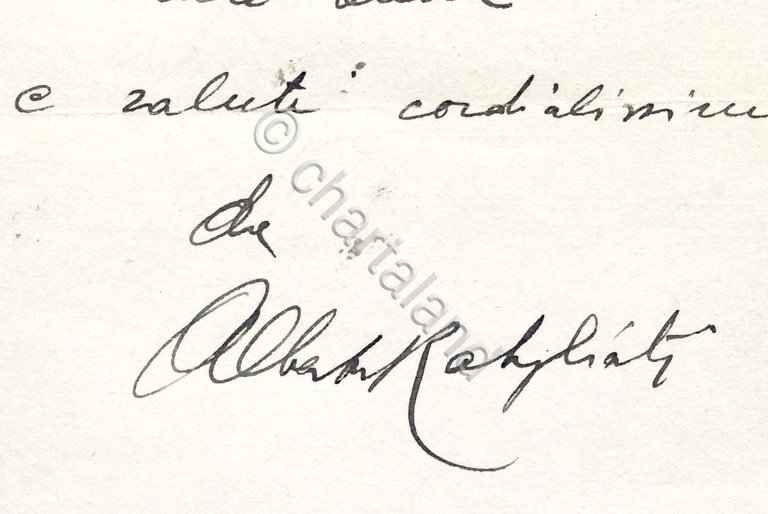 e saluti cordialissimi
da
Alberto Rabagliati
© chartaland